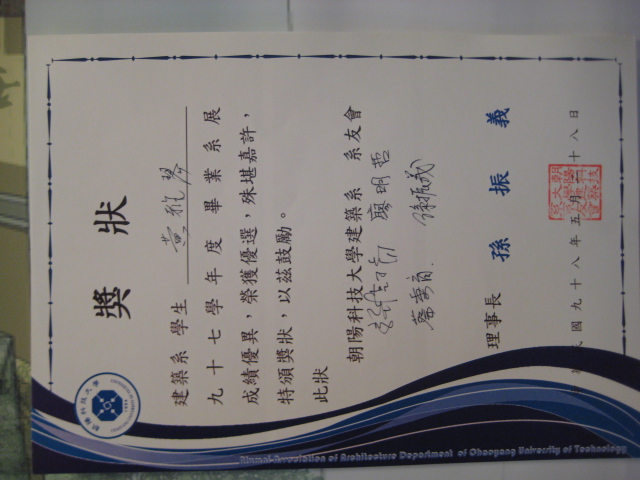 獎狀
建築系 學生 黃雅琴
九十七學年度 畢業系展
成績優異，榮獲優選，殊堪嘉許，
特頒獎狀，以茲鼓勵。
此狀
朝陽科技大學建築系 系友會
廖明哲
理事長 孫振義
民國九十八年五月 十八日
朝陽科技大學
Alumni Association of Architecture Department of Chaoyang University of Technology